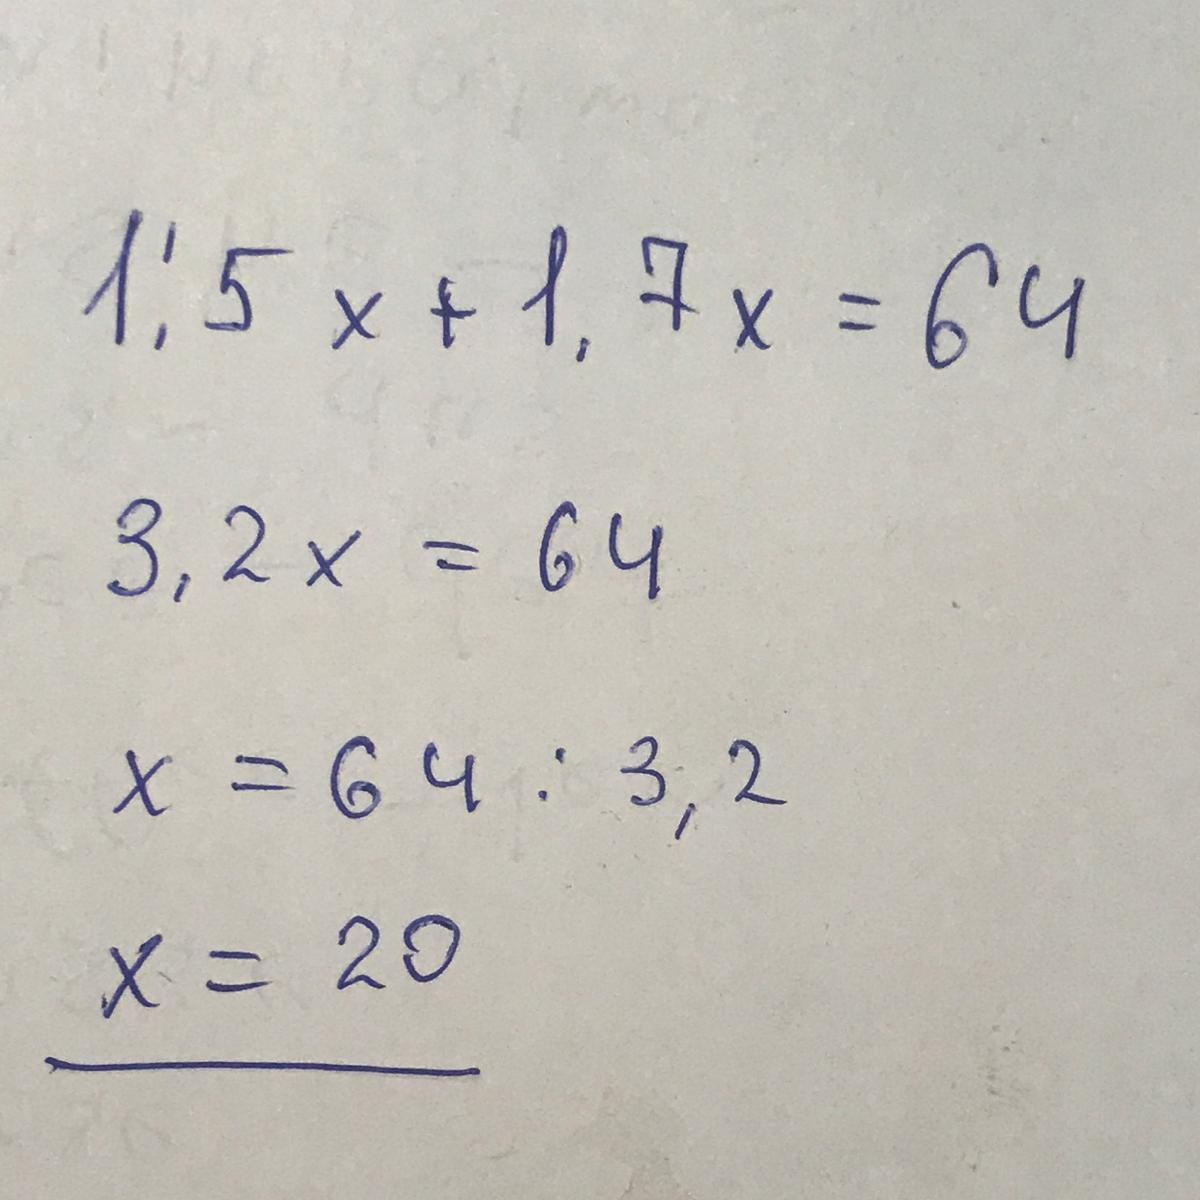 1,5x + 1,7x = 64
3,2x = 64
x = 64 : 3,2
x = 20